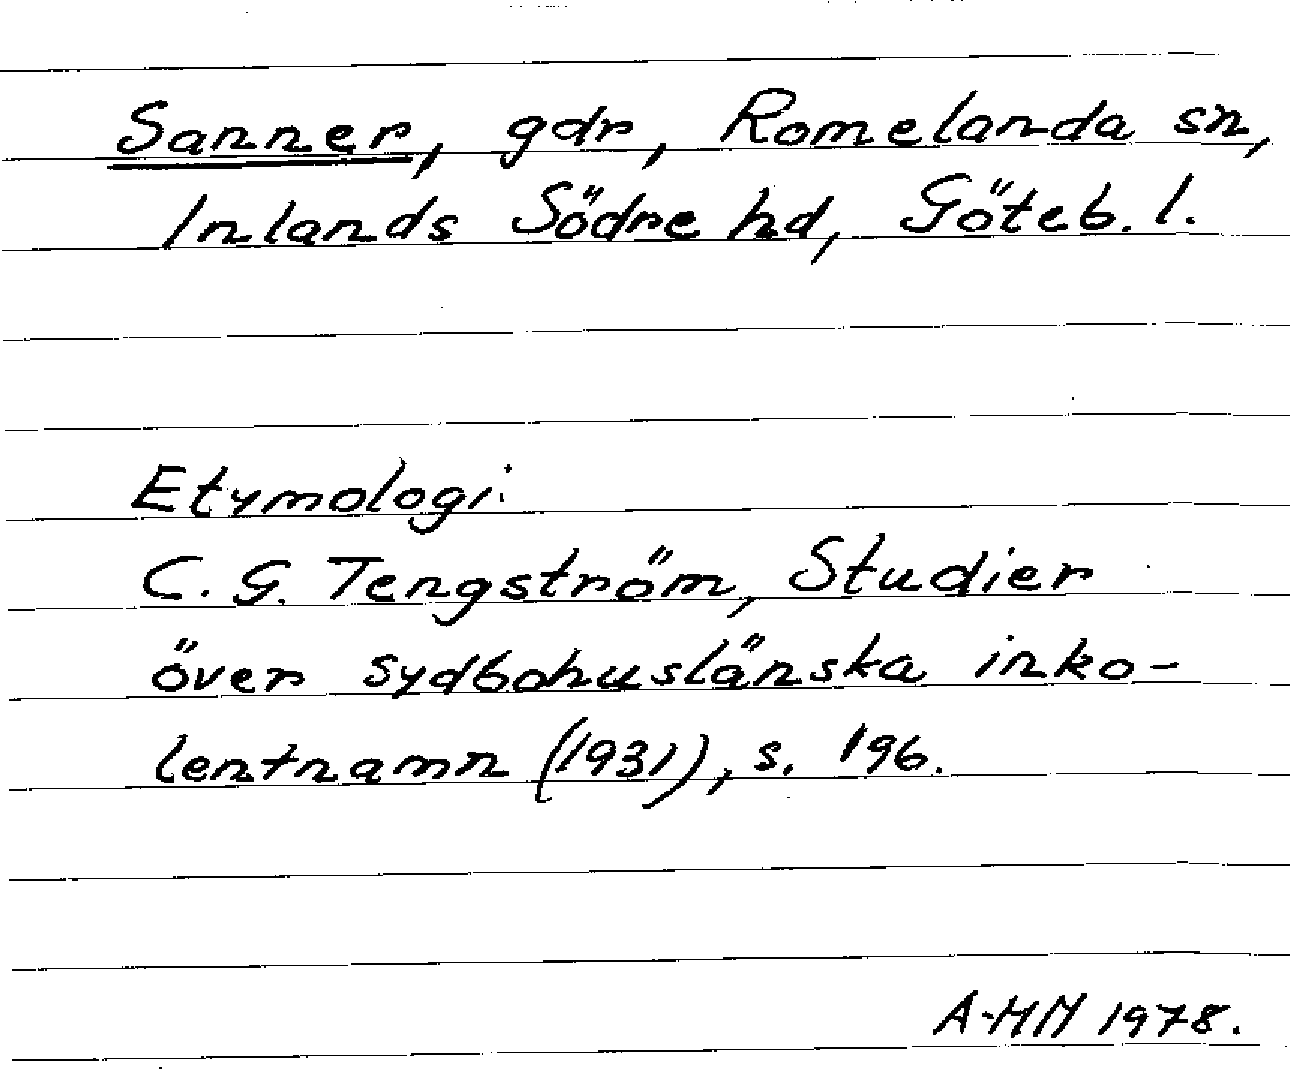 Sanner, gdr, Romelanda sn,
Inlands Södre hd, Göteb. l.
Etymologi:
C. G. Tengström, Studier
över sydbohuslänska inko-
lentnamn (1931), s. 196.
A-MN 1978.